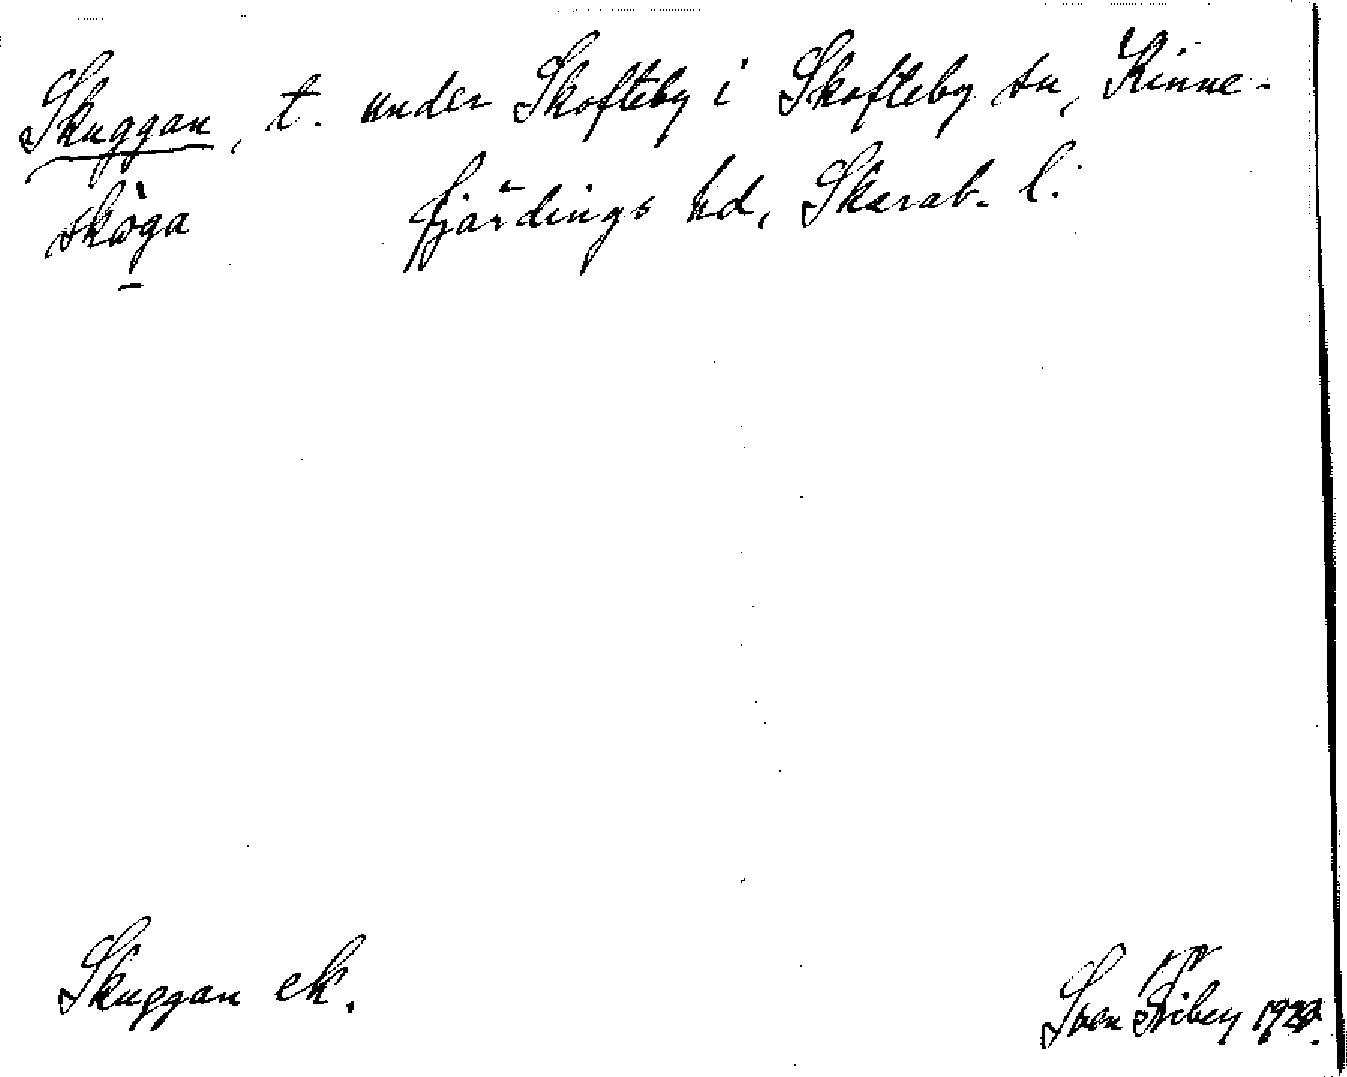 Skuggan, t. under Skofteby i Skofteby sn, Kinne-
skòga fjärdings hd, Skarab. l.
Skuggan ek.
Sven Fibey